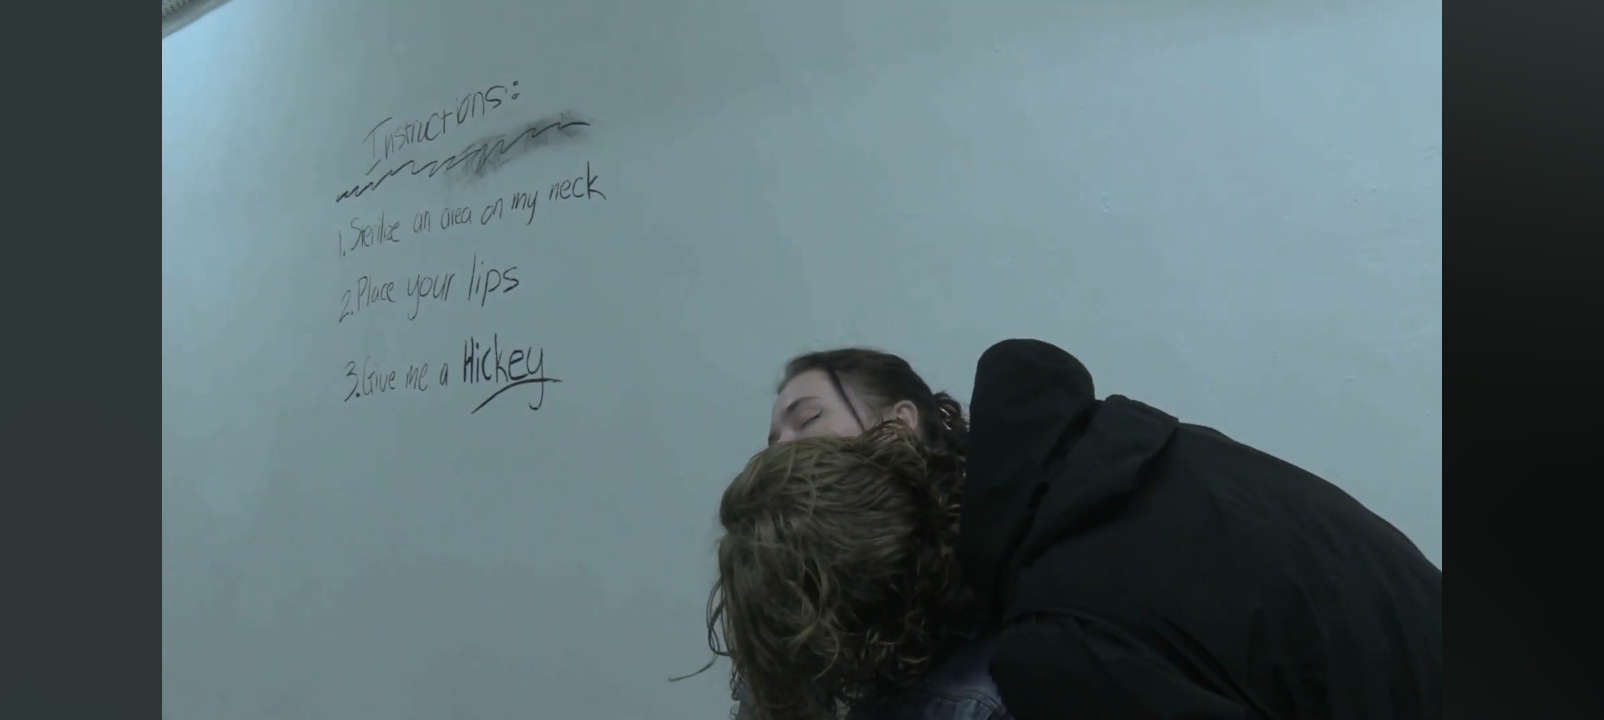 Instructions:
1. Sterilize an area on my neck
2. Place your lips
3. Give me a Hickey